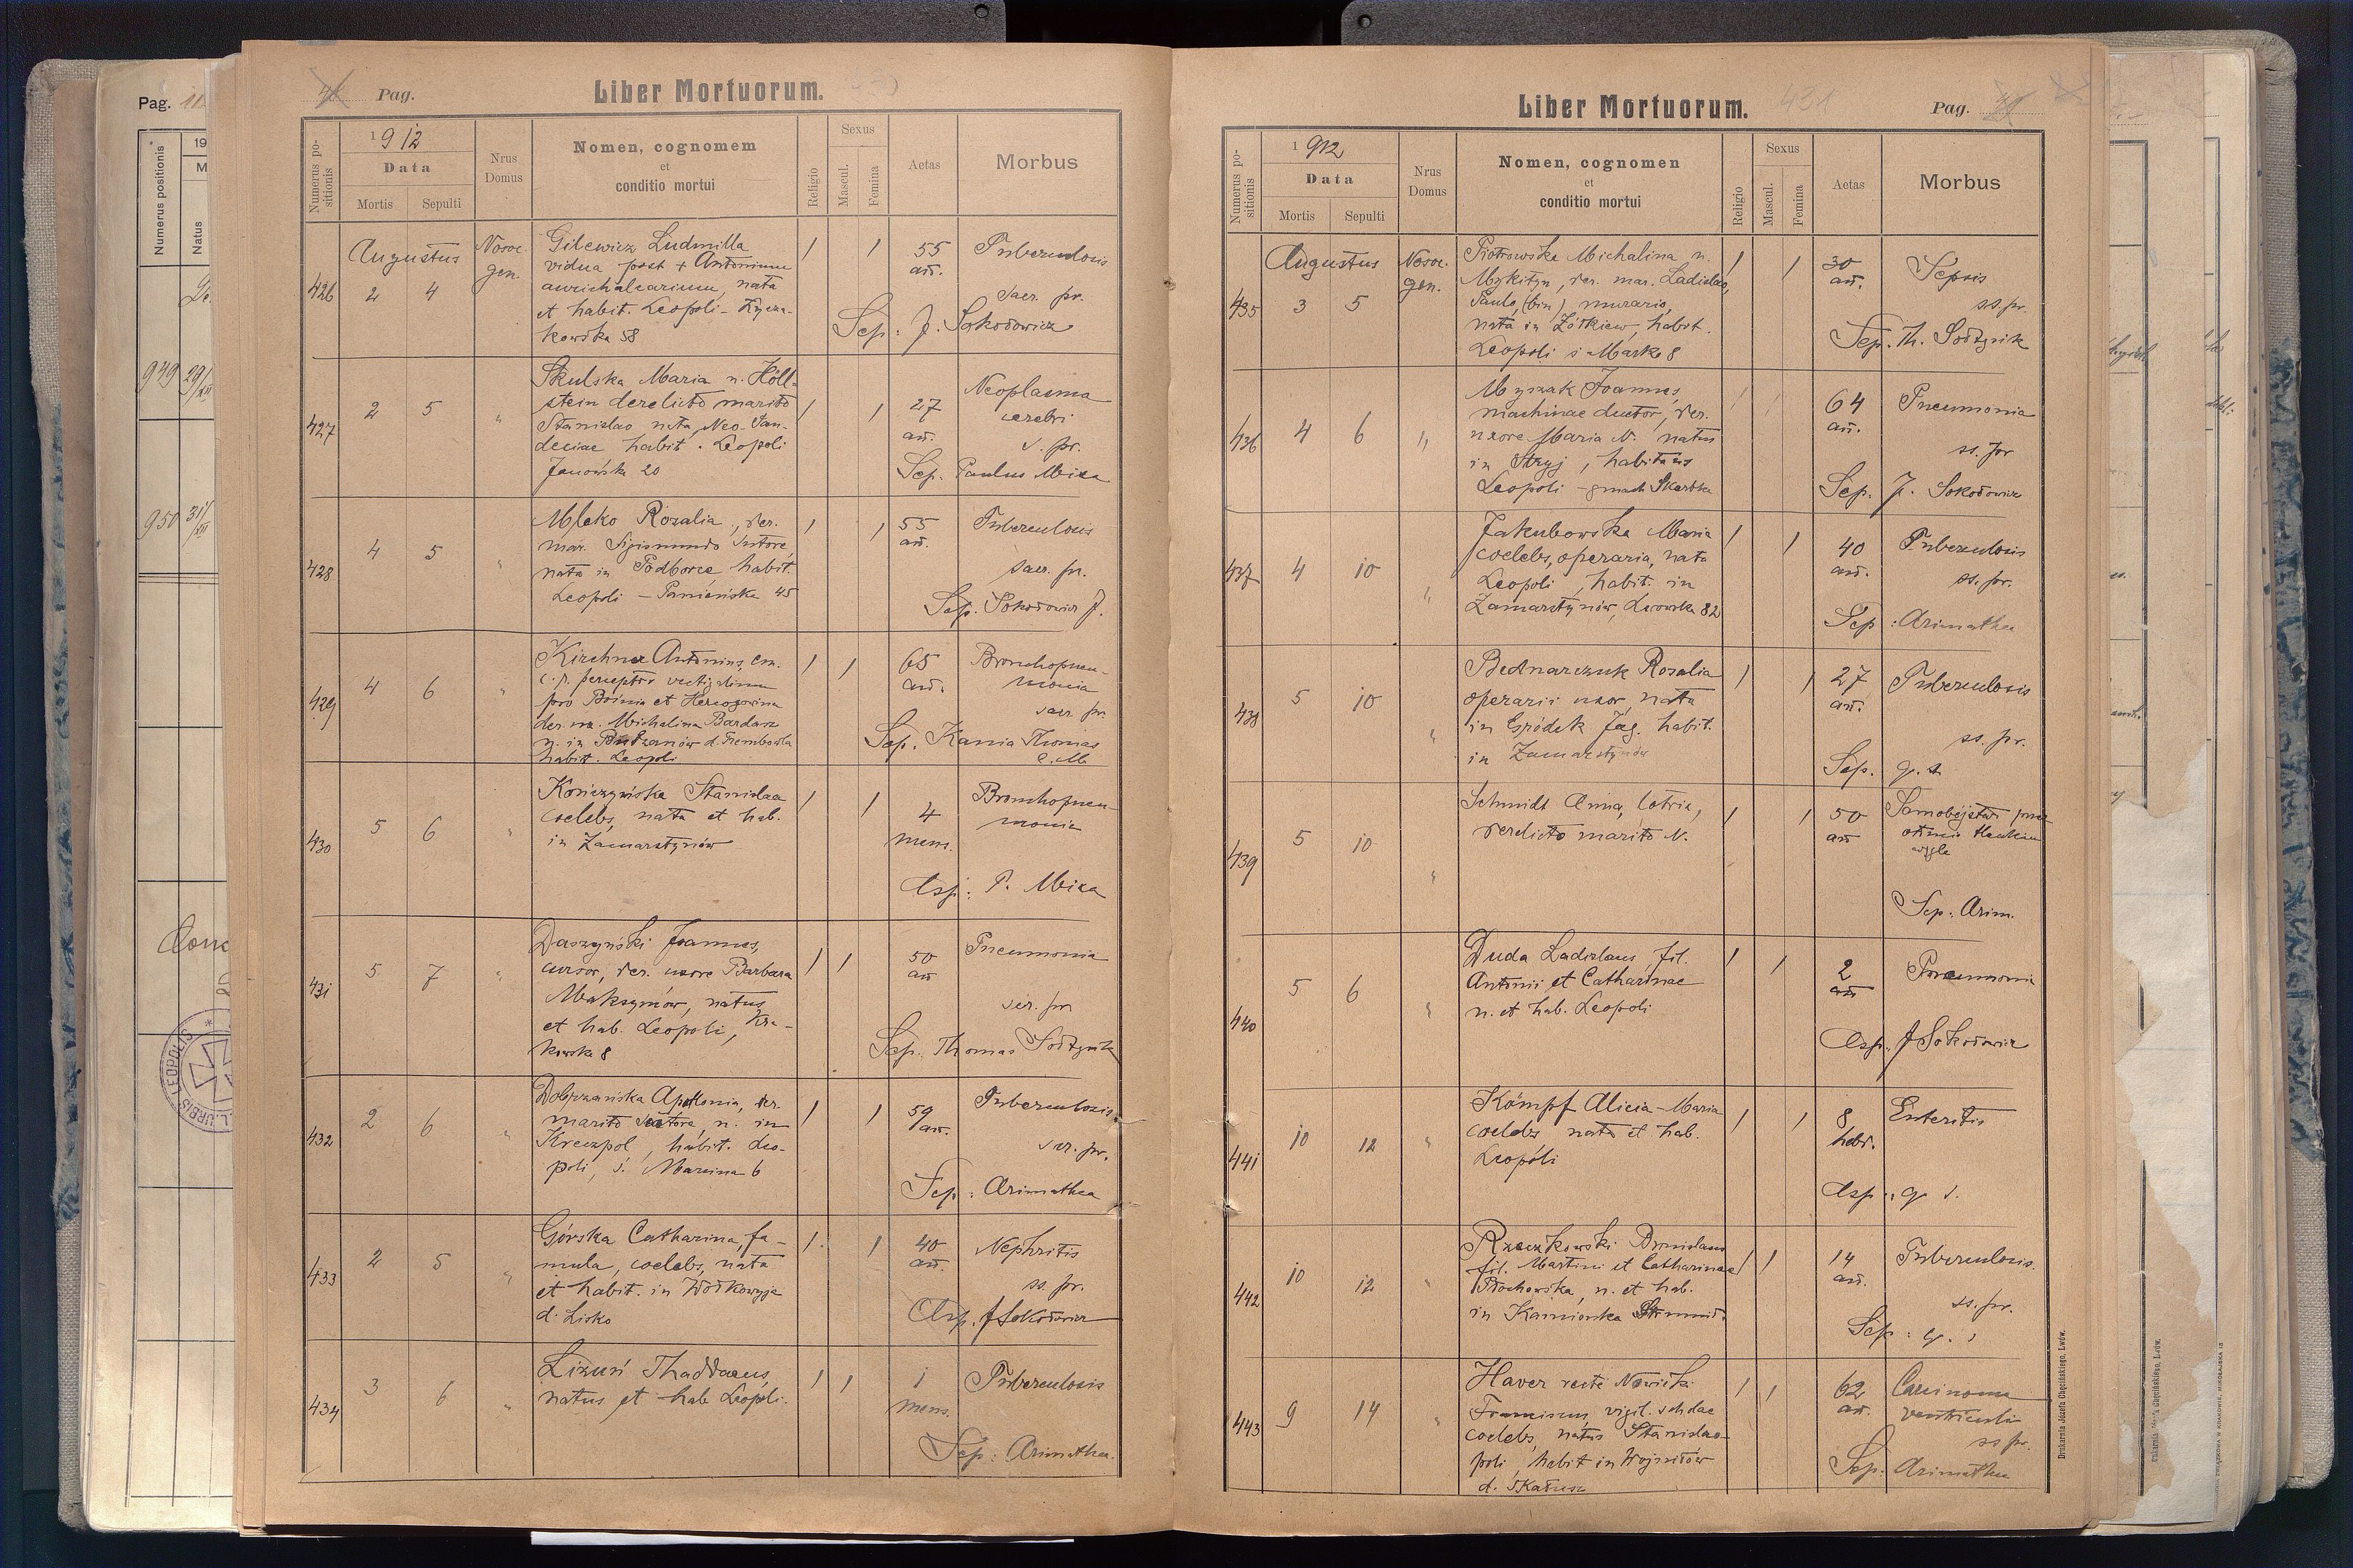 Pag. 11
Numerus positionis
19
M
Natus
De
949 29/XII
950 31/XII
Conc
Pag.
Liber Mortuorum.
Numerus positionis
1912
Data
Mortis
Sepulti
Nrus Domus
Nomen, cognomem
et
conditio mortui
Religio
Sexus
Mascul.
Femina
Aetas
Morbus
426
Augustus
2 4
Nosoc. gen.
Gilewicz Ludmilla
vidua post + Antonium
aurichalcarium, nata
et habit. Leopoli – Łycza-
kowska 58
1 1
55 an.
Tuberculosis
sacr. pr.
Sep: J. Sokołowicz
427
2 5 "
Skulska Maria n. Höll-
stein derelicto marito
Stanislao nata Neo-San-
deciae habit. Leopoli
Janowska 20
1 1
27 an.
Neoplasma
cerebri
s. pr.
Sep. Paulus Mika
428
4 5 "
Mleko Rozalia, der.
mar. Sigismundo sutore,
nata in Podborce habit.
Leopoli – Panieńska 45
1 1
55 an.
Tuberculosis
sacr. pr.
Sep. Sokołowicz J.
429
4 6 "
Kirchner Antonius, em.
c. r. perceptor vectigalium
pro Bosnia et Hercogovina
der. ux. Michalina Bardasz
n. in Budzanów d. Trembowla
habit. Leopoli
1 1
65 an.
Bronchopneu-
monia
sacr. pr.
Sep. Kania Thomas
C. M.
430
5 6 "
Kończyńska Stanislaa
coelebs, nata et hab.
in Zamarstynów
1 1
4 mens.
Bronchopneu-
monia
Asp: P. Mika
431
5 7 "
Daszyński Joannes,
cursor, der. uxore Barbara
Maksymów, natus
et hab. Leopoli, Kra-
kowska 8
1 1
50 an
Pneumonia
scr. pr.
Sep. Thomas Sołtysik
432
2 6 "
Dobrzańska Apollonia, der.
marito sutore, n. in
Kreczpol, habit. Leo-
poli, s. Marcina 6
1 1
59 an.
Tuberculosis
scr. pr.
Sep: Arimathea
433
2 5 "
Górska Catharina, fa-
mula, coelebs, nata
et habit. in Wołkowyja
d. Lisko
1 1
40 an.
Nephritis
ss. pr.
Asp. J Sokołowicz
434
3 6 "
Lizuń Thaddaeus,
natus et hab Leopoli.
1 1
1 mens.
Tuberculosis
Sep: Arimathea.
Liber Mortuorum. 431
Pag.
Numerus positionis
1912
Data
Mortis
Sepulti
Nrus Domus
Nomen, cognomen
et
conditio mortui
Religio
Sexus
Mascul.
Femina
Aetas
Morbus
435
Augustus
3 5
Nosoc. gen.
Piotrowska Michalina n.
Mykityn, der. mar. Ladislao,
Paulo, (bin) murario,
nata in Żółkiew, habit.
Leopoli s Marka 8
1 1
30 an.
Sepsis
ss. pr.
Sep. Th. Sołtysik
436
4 6 "
Myszak Joannes,
machinae ductor, der.
uxore Maria N. natus
in Stryj, habitans
Leopoli – gmach Skarbka
1 1
64 an.
Pneumonia
ss. pr
Sep. J. Sokołowicz
437
4 10 "
Jakubowska Maria
coelebs, operaria, nata
Leopoli, habit. in
Zamarstynów, Lwowska 82
1 1
40 an.
Tuberculosis
ss. pr.
Sep: Arimathea
438
5 10 "
Bednarczuk Rosalia
operarii uxor, nata
in Gródek Jag. habit.
in Zamarstynów
1 1
27 an.
Tuberculosis
ss. pr.
Sep. q. s.
439
5 10 "
Schmidt Anna, lotrix,
derelicto marito N.
1 1
50 an
Samobójstwo przez
otrucie tlenkiem
węgla
Sep: Arim.
440
5 6 "
Duda Ladislaus, fil.
Antonii et Catharinae
n. et hab. Leopoli
1 1
2 an
Pneumonia
Asp. J Sokołowicz
441
10 12 "
Kömpf Alicia-Maria
coelebs nata et hab.
Leopoli
1 1
8 hebd.
Enteritis
Asp: q s.
442
10 12 "
Rzeczkowski Bronislaus
fil. Martini et Catharinae
Błochowska, n. et hab.
in Kamionka Strumił.
1 1
14 an.
Tuberculosis.
ss. pr.
Sep: q. s
443
9 14 "
Haver recte Nowicki
Franciscus, vigil.
coelebs, natus Stanislao-
poli, habit in Wojniłów
d. Kałusz
1 1
62 an.
Carcinoma
ventriculi
ss pr.
Sep: Arimathea
Drukarnia Józefa Chęcińskiego, Lwów.